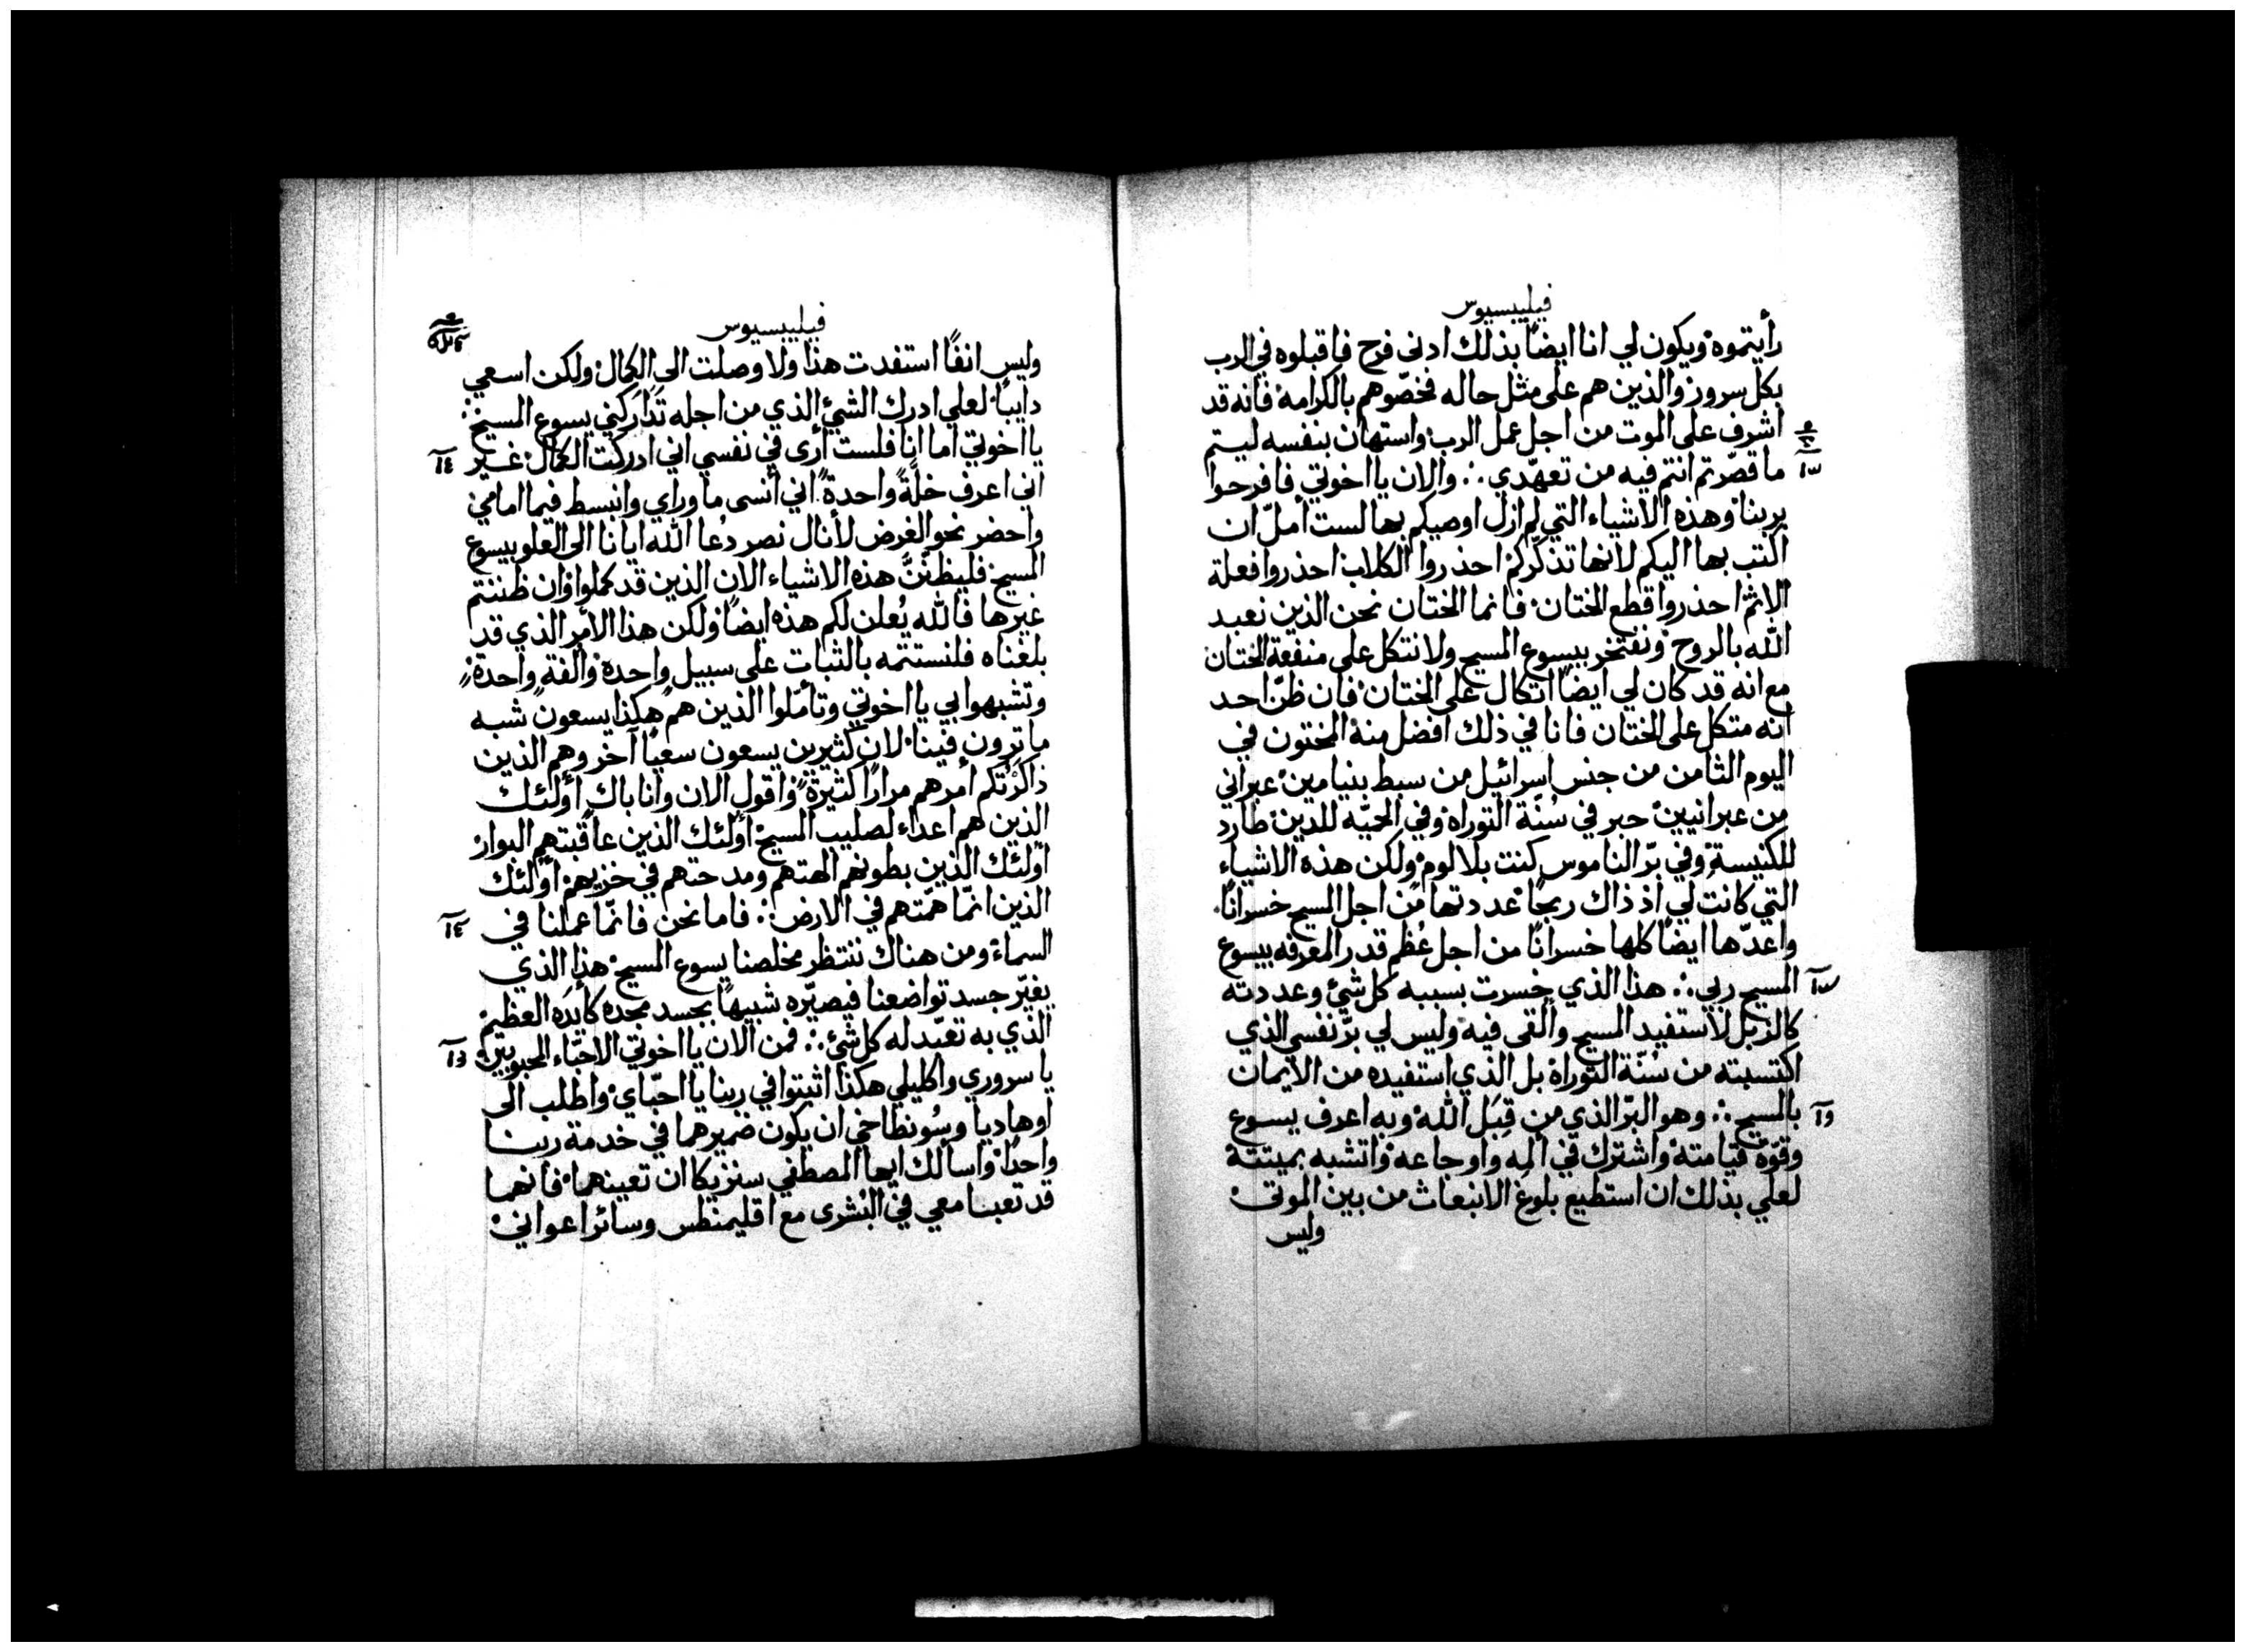 فيليبسيوس
رأيتموه ويكون لي انا ايضًا بذلك ادنى فرح فاقبلوه في الرب
بكل سرور والذين هم على مثل حاله فخصّوهم بالكرامة فانه قد
اشرف على الموت من اجل عمل الرب واستهان بنفسه ليتم
ما قصّرتم انتم فيه من تعهّدي ∴ والان يا اخوتي فافرحوا
بربنا وهذه الاشياء التي لم ازل اوصيكم بها لست املّ ان
اكتب بها اليكم لانها تذكّركم احذروا الكلاب احذروا فعلة
الاثم احذروا قطع الختان فانما الختان نحن الذين نعبد
الله بالروح ونفتخر بيسوع المسيح ولا نتكل على منفعة الختان
مع انه قد كان لي ايضًا اتكال على الختان فان ظنّ احد
انه متكل على الختان فانا في ذلك افضل منه المختون في
اليوم الثامن من جنس اسرائيل من سبط بنيامين عبراني
من عبرانيين حبر في سُنّة التوراه وفي الحميّه للدين طارد
للكنيسة وفي برّ الناموس كنت بلا لوم ولكن هذه الاشياء
التي كانت لي اذ ذاك ربحًا عددتها من اجل المسيح خسرانًا
واعدّها ايضًا كلها خسرانًا من اجل عُظم قدر المعرفه بيسوع
المسيح ربي ∴ هذا الذي خسرت بسببه كل شئ وعددته
كالزبل لاستفيد المسيح وألقى فيه وليس لي برّ نفسي الذي
اكتسبته من سُنّة التوراة بل الذي استفيده من الايمان
بالمسيح ∴ وهو البرّ الذي من قِبَل الله وبه اعرف يسوع
وقوّة قيامته واشترك في المِه واوجاعه واتشبه بميتتة
لعلي بذلك ان استطيع بلوغ الانبعاث من بين الموتى
وليس
فيليبسيوس
وليس انفًا استفدت هذا ولا وصلت الى الكمال ولكن اسعي
دايبًا لعلي ادرك الشئ الذي من اجله تَدَارَكني يسوع المسيح
يا اخوتي اما انا فلست أرى في نفسي اني ادركت الكمال غير
اني اعرف خلّةً واحدةً اني أنسى ما وراي وانبسط فيما امامي
واحضر نحو الغرض لأنال نصر دُعا الله ايانا الى العلو بيسوع
المسيح فليظنّنَّ هذه الاشياء الان الذين قد كملوا وان ظننتم
غيرها فالله يُعلن لكم هذه ايضًا ولكن هذا الأمر الذي قد
بلغناه فلنستتمه بالثبات على سبيل واحدة والفة واحدة
وتشبهوا بي يا اخوتي وتأمّلوا الذين هم هكذا يسعون شبه
ما ترون فينا لان كثيرين يسعون سعيًا آخر وهم الذين
ذاكرتكم أمرهم مرارًا كثيرة واقول الان وانا باكٍ أولئك
الذين هم اعداء لصليب المسيح أولئك الذين عاقبتهم البوار
أولئك الذين بطونهم الهتهم ومدحتهم في خزيهم أولئك
الذين انّما همّتهم في الارض ∴ فاما نحن فانّما عملنا في
السماء ومن هناك ننتظر مخلصنا يسوع المسيح هذا الذي
يغيّر جسد تواضعنا فيصيّره شبيهًا بجسد مجده كأيدَه العظيم
الذي به تعبّد له كل شئ ∴ فمن الان يا اخوتي الاحبّاء المحبوبين
يا سروري واكليلي هكذا اثبتوا في ربنا يا احبّاي واطلب الى
اوهاديا وسُونطاخي ان يكون ضميرهما في خدمة ربنا
واحدًا واسالك ايها المصطفي سنزيكا ان تعينهما فانهما
قد تعبا معي في البُشرى مع اقليمنطس وسائر اعواني